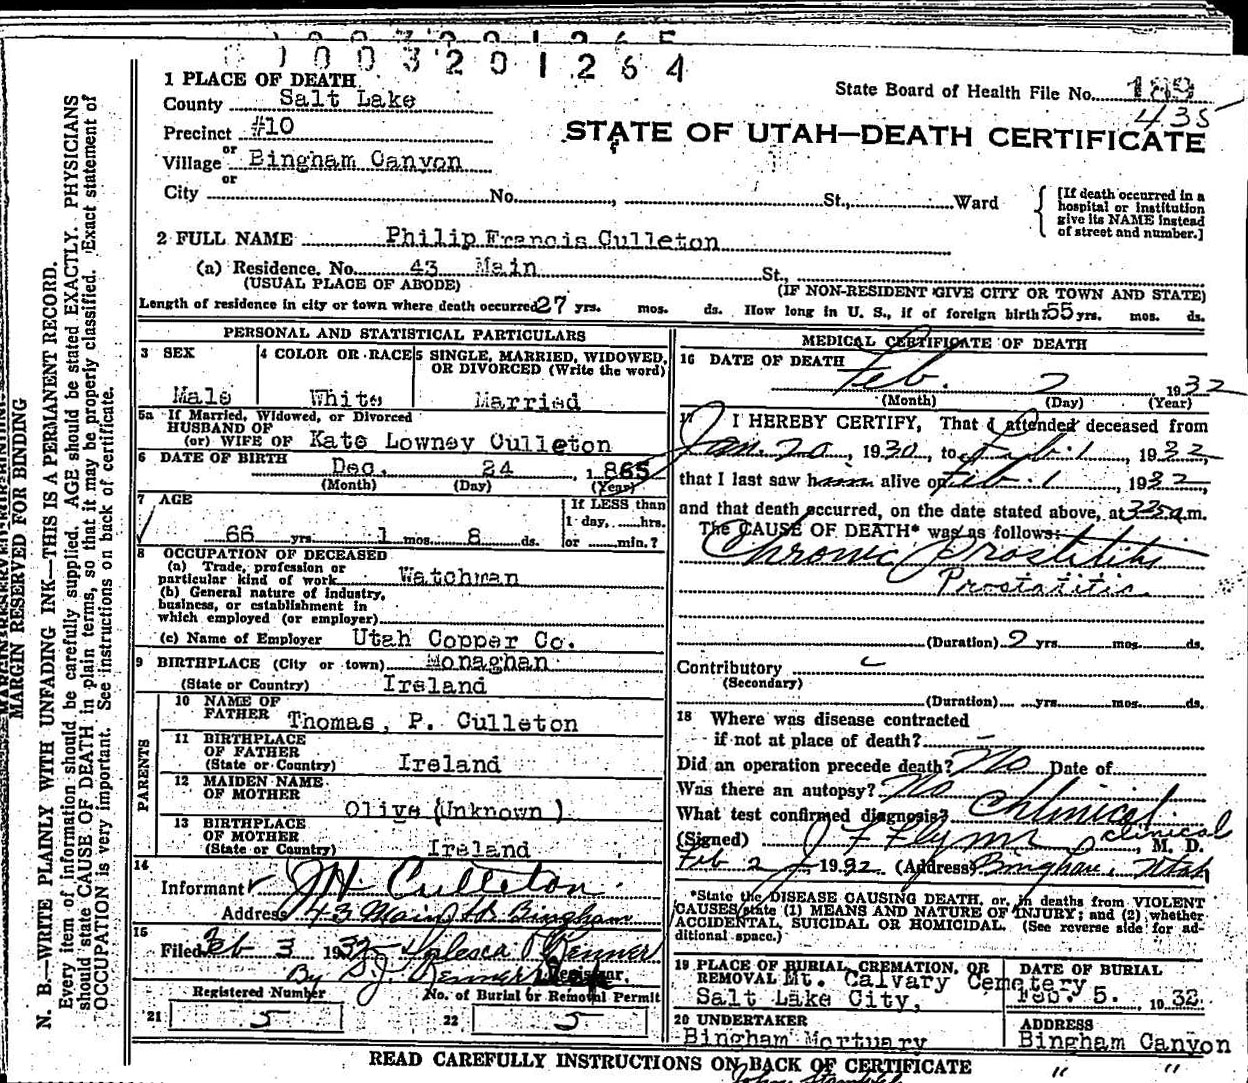 1003201264
1 PLACE OF DEATH
County Salt Lake
State Board of Health File No. 189
435
Precinct #10
STATE OF UTAH—DEATH CERTIFICATE
or
Village Bingham Canyon
or
City No. , St., Ward
[If death occurred in a
hospital or institution
give its NAME instead
of street and number.]
2 FULL NAME Philip Francis Culleton
(a) Residence. No. 43 Main St.,
(USUAL PLACE OF ABODE) (IF NON-RESIDENT GIVE CITY OR TOWN AND STATE)
Length of residence in city or town where death occurred 27 yrs. mos. ds. How long in U. S., if of foreign birth? 55 yrs. mos. ds.
PERSONAL AND STATISTICAL PARTICULARS
3 SEX
Male
4 COLOR OR RACE
White
5 SINGLE, MARRIED, WIDOWED,
OR DIVORCED (Write the word)
Married
5a If Married, Widowed, or Divorced
HUSBAND OF
(or) WIFE OF Kate Lowney Culleton
6 DATE OF BIRTH
Dec. 24, 1865
(Month) (Day) (Year)
7 AGE
66 yrs. 1 mos. 8 ds.
If LESS than
1 day, hrs.
or min.?
8 OCCUPATION OF DECEASED
(a) Trade, profession or
particular kind of work Watchman
(b) General nature of industry,
business, or establishment in
which employed (or employer)
(c) Name of Employer Utah Copper Co.
9 BIRTHPLACE (City or town) Monaghan
(State or Country) Ireland
PARENTS
10 NAME OF
FATHER Thomas, P. Culleton
11 BIRTHPLACE
OF FATHER
(State or Country) Ireland
12 MAIDEN NAME
OF MOTHER
Olive (Unknown)
13 BIRTHPLACE
OF MOTHER
(State or Country) Ireland
14
Informant J H Culleton
Address 43 Main St Bingham
15
Filed Feb 3 1932 Renner
By S.J. Renner Registrar.
Registered Number
21 5
No. of Burial or Removal Permit
22 5
MEDICAL CERTIFICATE OF DEATH
16 DATE OF DEATH
Feb. 2 1932
(Month) (Day) (Year)
17 I HEREBY CERTIFY, That I attended deceased from
Jan. 20, 1930, to Feb. 1, 1932,
that I last saw him alive on Feb. 1, 1932,
and that death occurred, on the date stated above, at 335 a.m.
The CAUSE OF DEATH* was as follows:
Chronic Prostitits
Prostatitis
(Duration) 2 yrs. mos. ds.
Contributory
(Secondary)
(Duration) yrs. mos. ds.
18 Where was disease contracted
if not at place of death? —
Did an operation precede death? No Date of
Was there an autopsy? No
What test confirmed diagnosis? Chlinical
clinical
(Signed) J F Flynn, M. D.
Feb 2, 1932 (Address) Bingham, Utah
*State the DISEASE CAUSING DEATH, or, in deaths from VIOLENT
CAUSES state (1) MEANS AND NATURE OF INJURY; and (2) whether
ACCIDENTAL, SUICIDAL OR HOMICIDAL. (See reverse side for ad-
ditional space.)
19 PLACE OF BURIAL, CREMATION, OR
REMOVAL Mt. Calvary Cemetery
Salt Lake City,
DATE OF BURIAL
Feb. 5. 1932
20 UNDERTAKER
Bingham Mortuary
ADDRESS
Bingham Canyon
READ CAREFULLY INSTRUCTIONS ON BACK OF CERTIFICATE
" "
MARGIN RESERVED FOR BINDING
N. B.—WRITE PLAINLY WITH UNFADING INK—THIS IS A PERMANENT RECORD.
Every item of information should be carefully supplied. AGE should be stated EXACTLY. PHYSICIANS
should state CAUSE OF DEATH in plain terms, so that it may be properly classified. Exact statement of
OCCUPATION is very important. See instructions on back of certificate.